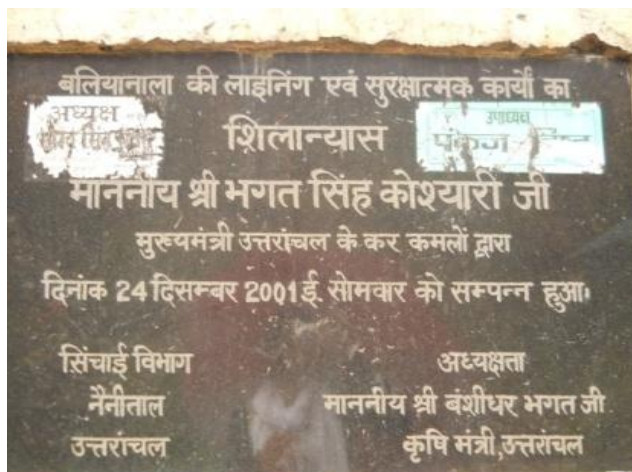 बलियानाला की लाइनिंग एवं सुरक्षात्मक कार्यों का
अध्यक्ष
उपाध्यक्ष
शिलान्यास
पंकज
माननीय श्री भगत सिंह कोश्यारी जी
मुख्यमंत्री उत्तरांचल के कर कमलों द्वारा
दिनांक 24 दिसम्बर 2001 ई. सोमवार को सम्पन्न हुआ।
सिंचाई विभाग
नैनीताल
उत्तरांचल
अध्यक्षता
माननीय श्री बंशीधर भगत जी
कृषि मंत्री,उत्तरांचल